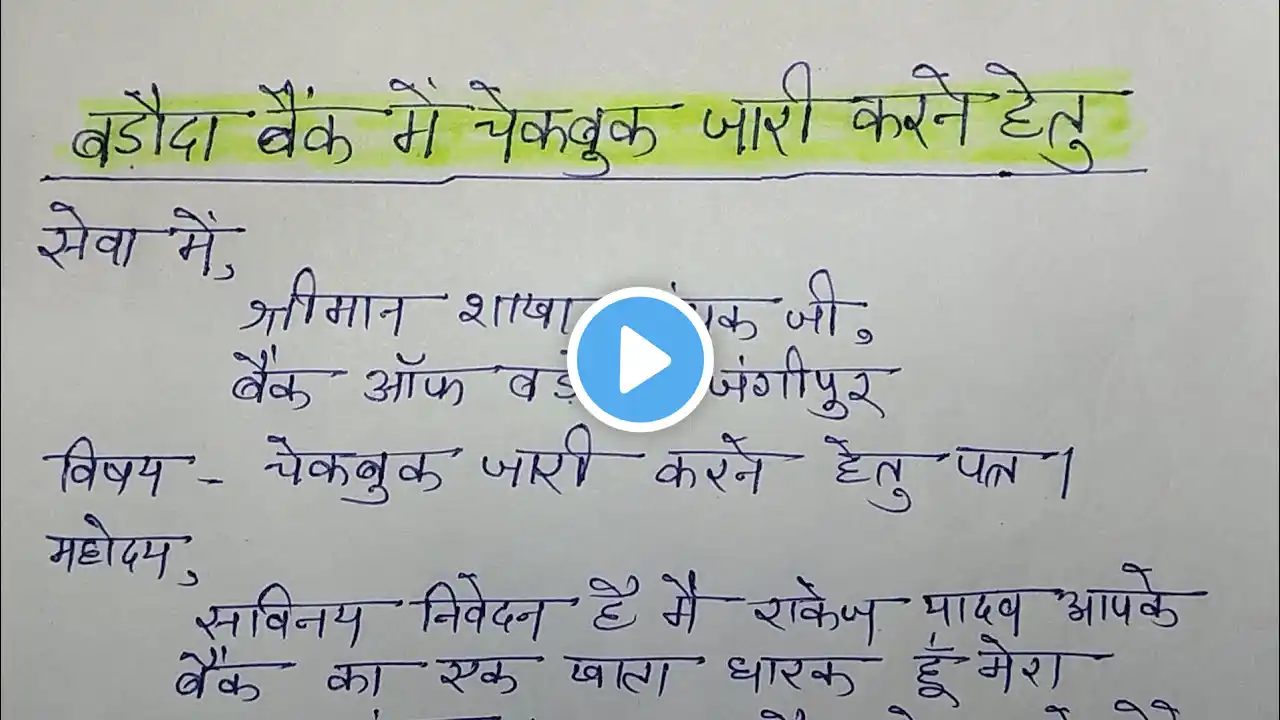 बड़ौदा बैंक में चेकबुक जारी करने हेतु
सेवा में,
श्रीमान शाखा जी,
बैंक ऑफ जंगीपुर
विषय - चेकबुक जारी करने हेतु पत्र।
महोदय,
सविनय निवेदन है मै राकेज यादव आपके
बैंक का एक खाता धारक हूँ मेरा